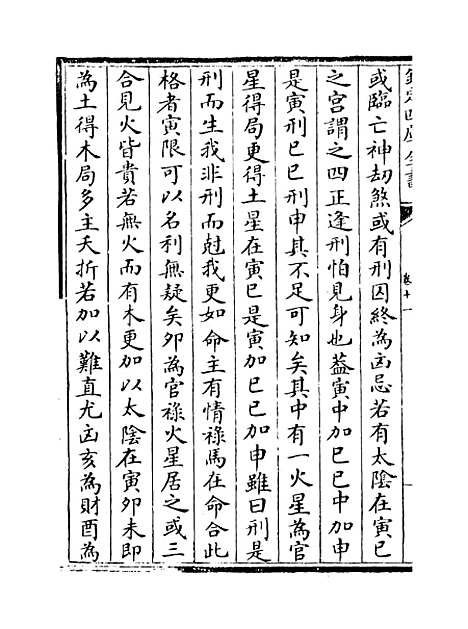 欽定四庫全書
卷十一
或臨亡神劫煞或有刑囚終為凶忌若有太陰在寅巳
之宮謂之四正逢刑怕見身也葢寅中加巳巳中加申
是寅刑巳巳刑申其不足可知矣其中有一火星為官
星得局更得土星在寅巳是寅加巳巳加申雖曰刑是
刑而生我非刑而尅我更如命主有情祿馬在命合此
格者寅限可以名利無疑矣卯為官祿火星居之或三
合見火皆貴若無火而有木更加以太陰在寅卯未即
為土得木局多主夭折若加以難直尤凶亥為財酉為